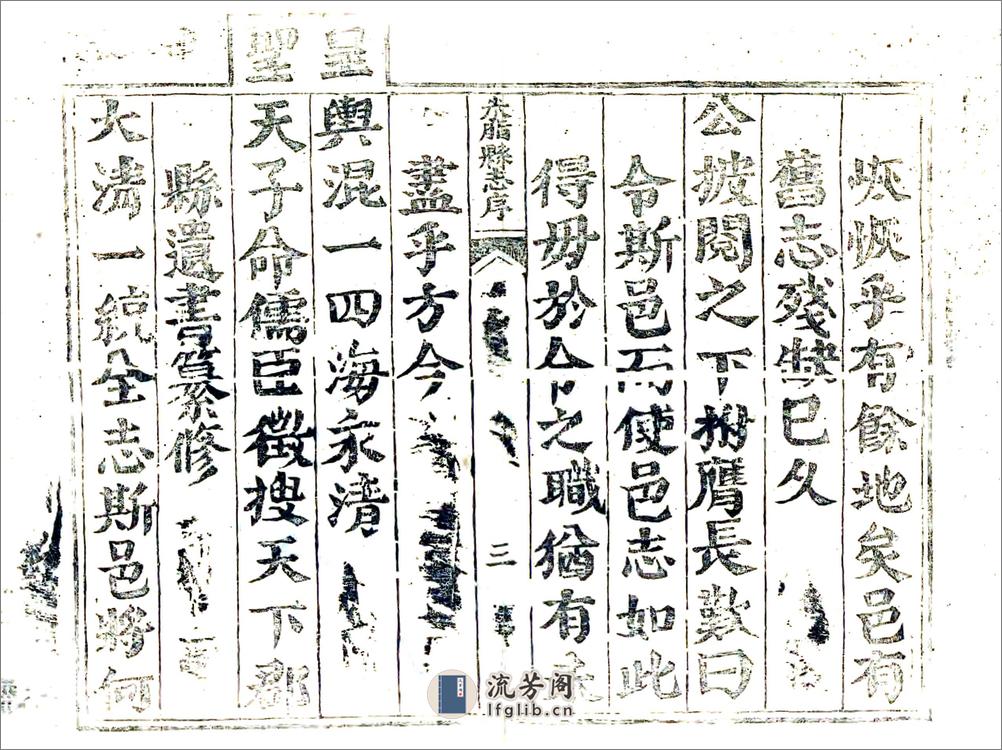 恢恢乎有餘地矣邑有
舊志殘缺已久
公披閱之下拊膺長歎曰
令斯邑而使邑志如此
得毋於令之職猶有未
盡乎方今
米脂縣志序 三
皇輿混一四海永清
聖天子命儒臣徵搜天下郡
縣遺書纂修
大清一統全志斯邑將何
流芳阁
lfglib.cn